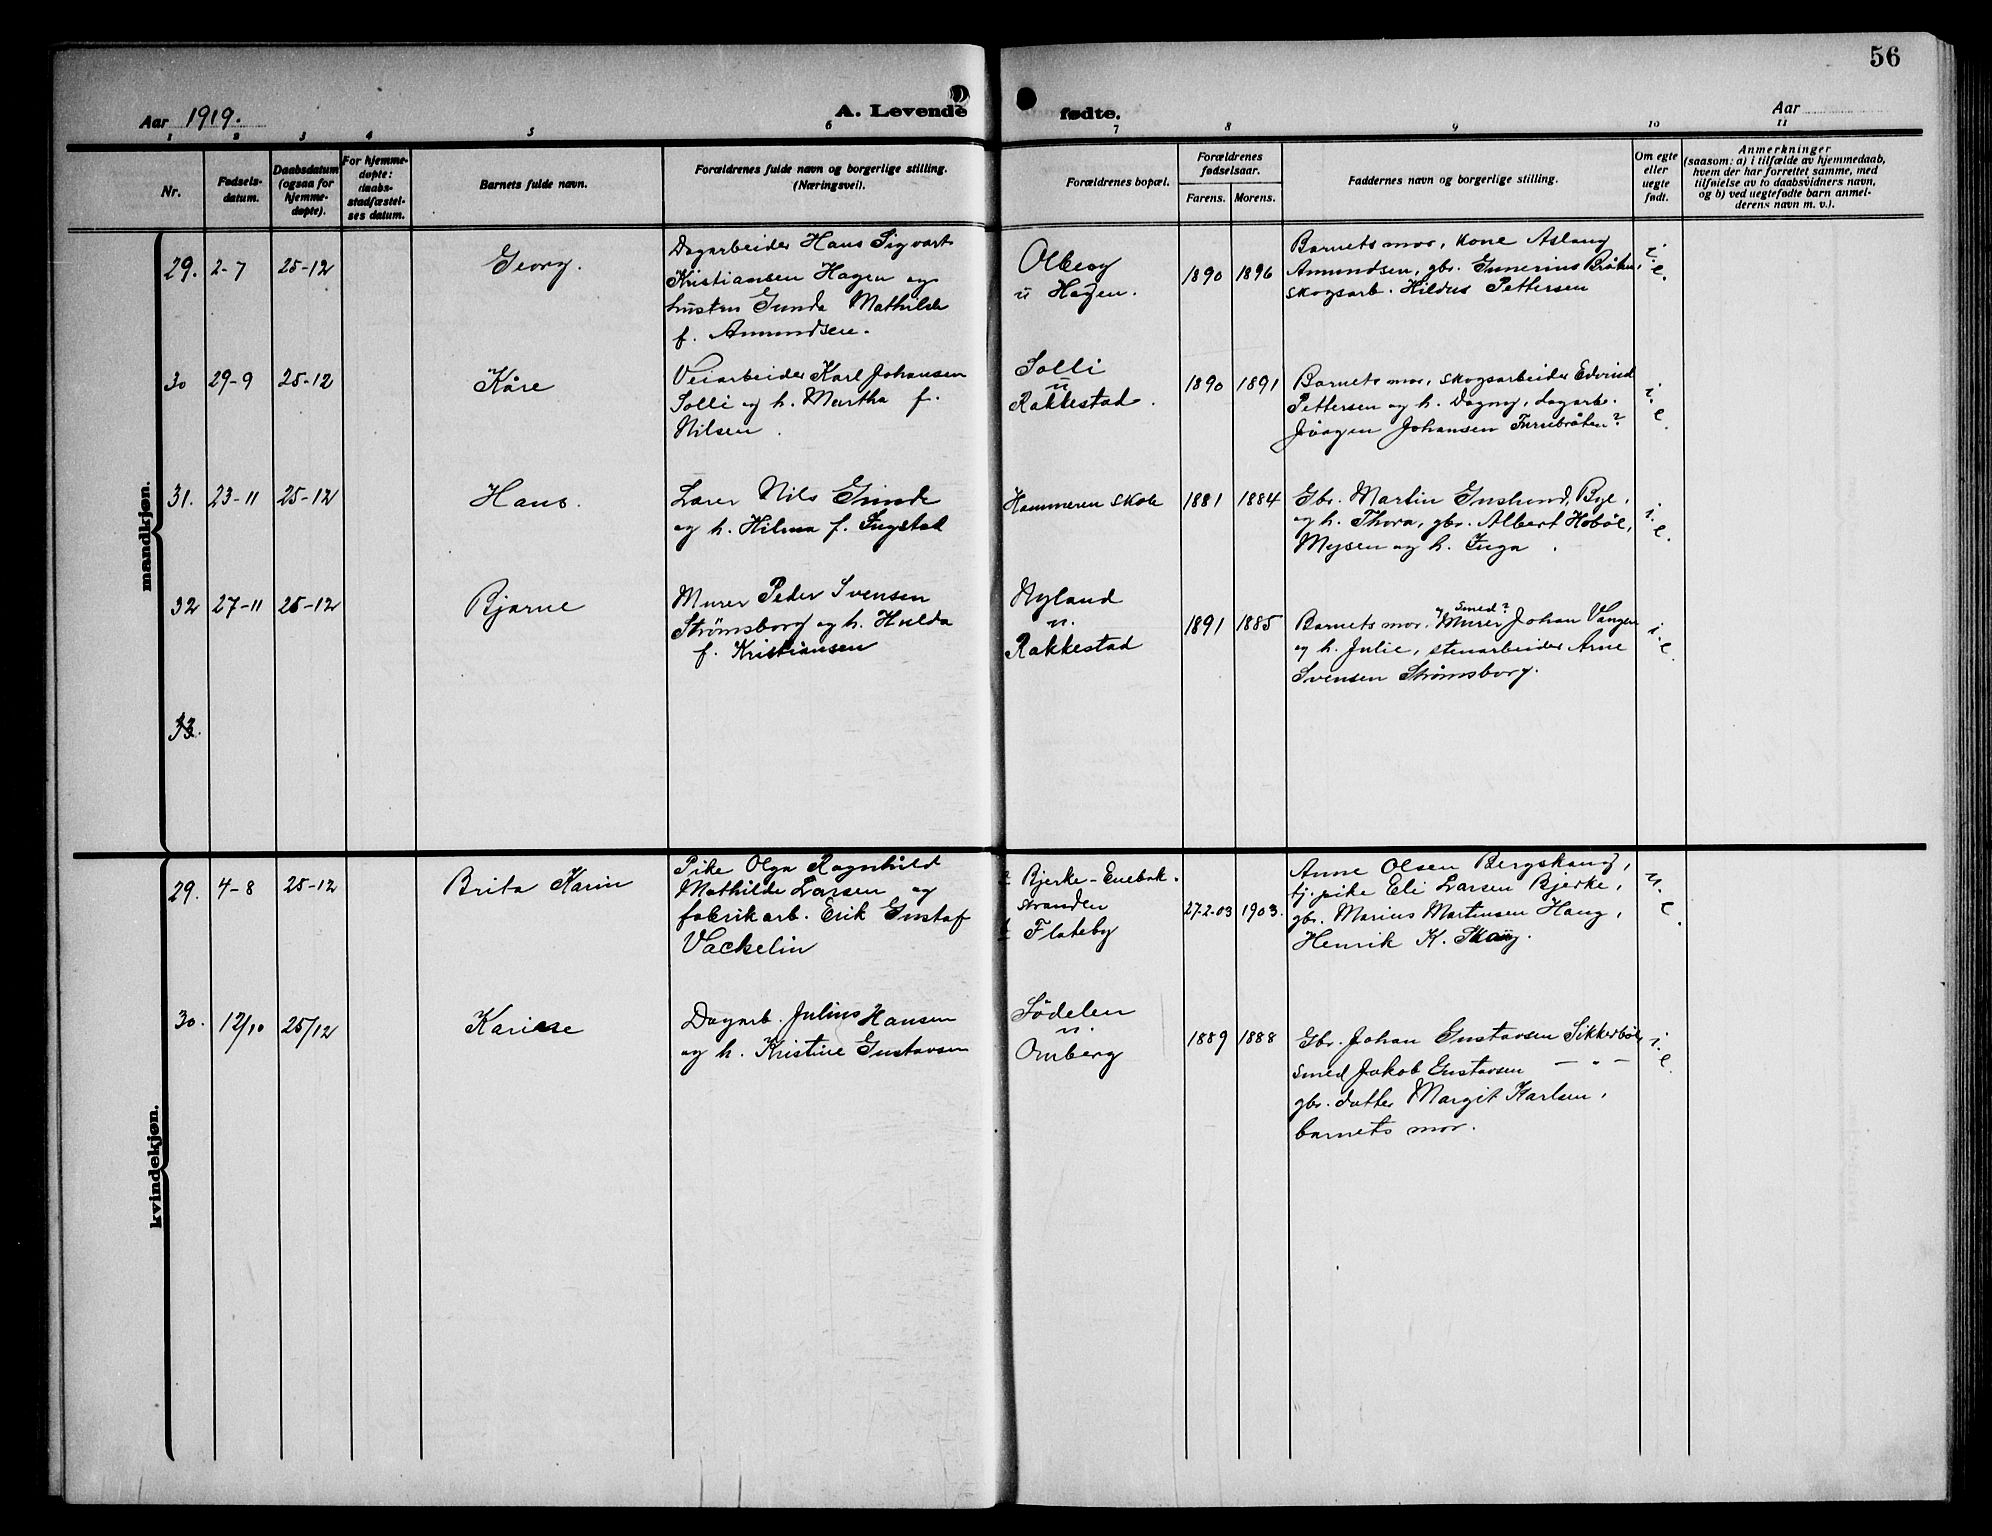 56
Aar 1919.
A. Levende fødte.
Aar
1 2 3 4 5 6 7 8 9 10 11
Nr.
Fødsels-
datum.
Daabsdatum
(ogsaa for
hjemme-
døpte).
For hjemme-
døpte:
daabs-
stadfæstel-
ses datum.
Barnets fulde navn.
Forældrenes fulde navn og borgerlige stilling.
(Næringsvei).
Forældrenes bopæl.
Forældrenes
fødselsaar.
Farens. Morens.
Faddernes navn og borgerlige stilling.
Om egte
eller
uegte
født.
Anmerkninger
(saasom: a) i tilfælde av hjemmedaab,
hvem der har forrettet samme, med
tilføielse av to daabsvidners navn,
og b) ved uegtefødte barn anmel-
derens navn m. v.).
mandkjøn.
29. 2-7 25-12
Georg.
Dagarbeider Hans Sigvart
Kristiansen Hagen og
hustru Gunda Mathilde
f. Amundsen.
Olberg
u Hagen.
1890 1896
Barnets mor, kone Aslaug
Amundsen, gbr. Gunerius Bråten,
skogsarb. Hildus Pettersen
i.
e.
30 29-9 25-12
Kåre
Veiarbeider Karl Johansen
Solli og h. Martha f.
Nilsen.
Solli
u
Rakkestad.
1890 1891
Barnets mor, skogsarbeider Edvind
Pettersen og h. Dagny, dagarb.
Jørgen Johansen Furubråten?
i.
e.
31. 23-11 25-12
Hans.
Lærer Nils Grinde
og h. Hilma f. Ingstad
Hammeren skole
1881 1884
Gbr. Martin Enslund, Bye,
og h. Thora, gbr. Albert Hobøl,
Mysen og h. Inga.
i.
e.
32 27-11 25-12
Bjarne
Murer Peder Svensen
Strømsborg og h. Hulda
f. Kristiansen
Nyland
u.
Rakkestad
1891 1885
og Smed?
Barnets mor, Murer Johan Vangen
og h. Julie, stenarbeider Arne
Svensen Strømsborg.
i.
e.
33.
kvindekjøn.
29. 4-8 25-12
Brita Karin
Pike Olga Ragnhild
Mathilde Larsen og
fabrikarb. Erik Gustaf
Vackelin
Bjerke-Enebak.
stranden
Flateby
27-2-03 1903.
Anne Olsen Bergskaug,
tj. pike Eli Larsen Bjerke,
gbr. Marius Martinsen Haug,
Henrik K. Skaug.
u.
e.
30. 12/10 25/12
Karine
Dagarb. Julius Hansen
og h. Kristine Gustavsen
Sødelen
u.
Omberg
1889 1888
Gbr. Johan Gustavsen Sikkerbøl
smed Jakob Gustavsen — " —
gbr. datter Margit Karlsen,
barnets mor.
i.
e.